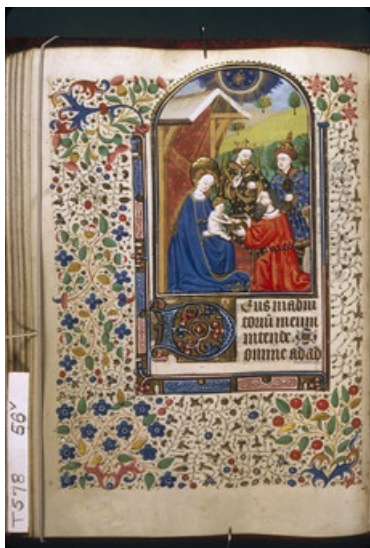 Deus in adiu
toriū meum
intende.
omine ad ad
T578 56v